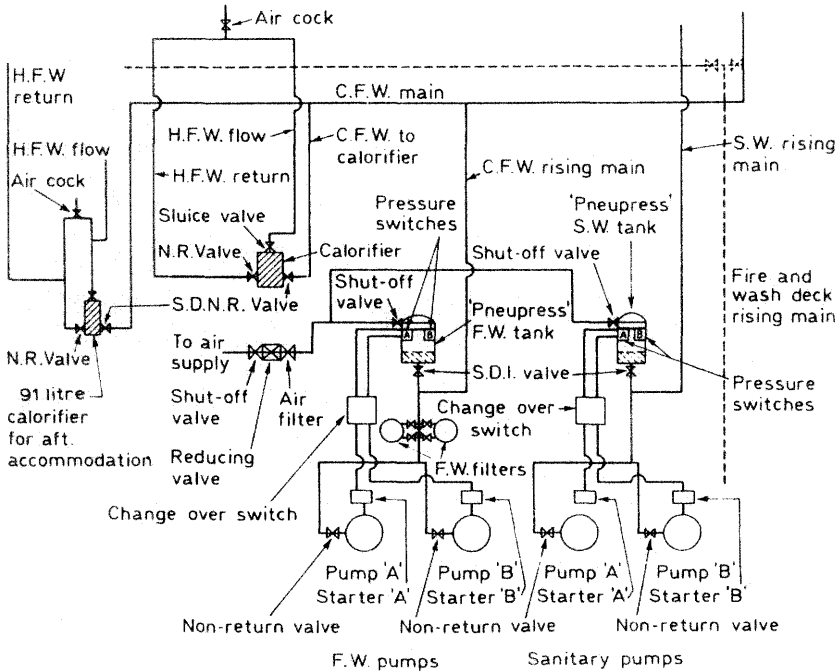 Air cock
H.F.W
return
C.F.W. main
H.F.W. flow
H.F.W. flow
C.F.W. to
calorifier
S.W. rising
main
C.F.W. rising main
Air cock
H.F.W. return
Sluice valve
Pressure
switches
'Pneupress'
S.W. tank
N.R.Valve
Calorifier
Shut-off valve
Shut-off
valve
Fire and
wash deck
rising main
S.D.N.R. Valve
'Pneupress'
F.W. tank
A
B
A
B
N.R.Valve
To air
supply
S.D.I. valve
Pressure
switches
91 litre
calorifier
for aft.
accommodation
Shut-off
valve
Air
filter
Change over
switch
Reducing
valve
F.W. filters
Change over switch
Pump 'A'
Starter 'A'
Pump 'B'
Starter 'B'
Pump 'A'
Starter 'A'
Pump 'B'
Starter 'B'
Non-return valve
Non-return valve
Non-return valve
F.W. pumps
Sanitary pumps